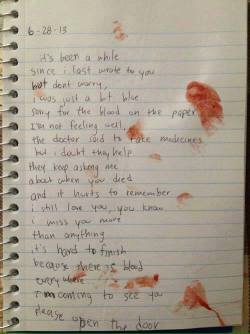 6-28-13
it's been a while
since i last wrote to you
but dont worry,
i was just a bit blue
sorry for the blood on the paper
I'm not feeling well,
the doctor said to take medicines
but i doubt they help
they keep asking me
about when you died
and it hurts to remember
i still love you, you know
i miss you more
than anything
it's hard to finish
because there is blood
everywhere
i'm coming to see you
please open the door